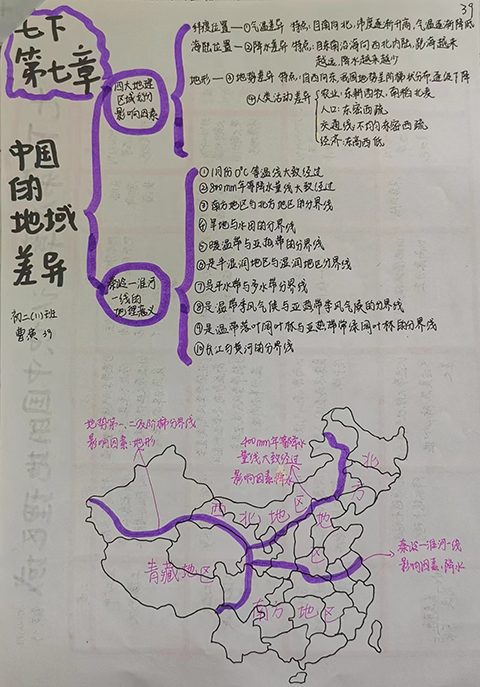 39
七下
第七章
中国
的
地域
差异
初二(11)班
曹奕 39
四大地理
区域划分
影响因素
纬度位置—①气温差异 特点:自南向北,纬度逐渐升高,气温逐渐降低
海陆位置—②降水差异 特点:自东南沿海向西北内陆,距海越来
越远,降水越来越少
地形—③地势差异 特点:自西向东,我国地势呈阶梯状分布,逐级下降
④人类活动差异
农业:东耕西牧,南稻北麦
人口:东密西疏
交通线:不均,东密西疏
经济:东高西低
秦岭—淮河
一线的
地理意义
①1月份0℃等温线大致经过
②800mm年等降水量线大致经过
③南方地区与北方地区的分界线
④旱地与水田的分界线
⑤暖温带与亚热带的分界线
⑥是半湿润地区与湿润地区分界线
⑦是少水带与多水带分界线
⑧是温带季风气候与亚热带季风气候的分界线
⑨是温带落叶阔叶林与亚热带常绿阔叶林的分界线
⑩长江与黄河的分界线
地势第一、二级阶梯分界线
影响因素:地形
400mm年等降水
量线大致经过
影响因素:降水
西北地区
北方地区
青藏地区
南方地区
秦岭—淮河一线
影响因素:降水